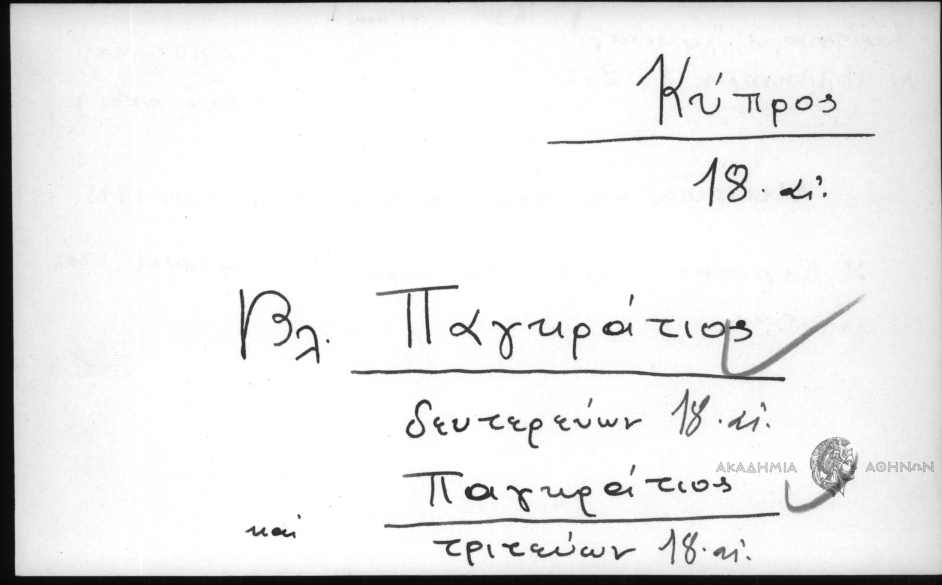 Κύπρος
18. αἰ.
Βλ. Παγκράτιος
δευτερεύων 18. αἰ.
ΑΚΑΔΗΜΙΑ ΑΘΗΝΩΝ
καὶ Παγκράτιος
τριτεύων 18. αἰ.